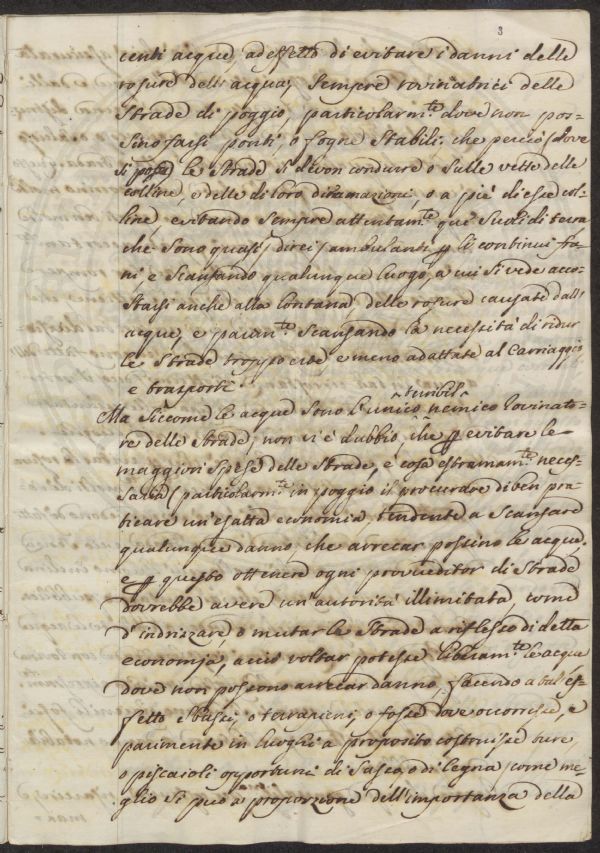 3
centi acque, ad effetto di evitare i danni delle
rosure dell'acqua, sempre rovinatrici delle
Strade di poggio, particolarm.te dove non pos-
sino farsi ponti, o fogne stabili: che perciò dove
si posa le strade si devon condurre o sulle vette delle
colline, e delle di loro diramazioni, o a piè di esse col-
line, evitando sempre attentam.te que' suoli di terra
che sono quasi direi ambulanti p li continui fra-
ni e scansando qualunque luogo, a cui si vede acco-
starsi anche alla lontana delle rosure causate dall'
acque, e parim.te scansando la necessità di ridur
le strade troppo erte, e meno adattate al Carriaggio
e trasporti.
Ma siccome le acque sono l'unico terribil nemico rovinato-
re delle strade, non vi è dubbio, che p evitare le
maggiori spese delle strade, è cosa estremam.te neces-
saria (particolarm.te in poggio il procurare di ben pra-
ticare un'esatta economia, tendente a scansare
qualunque danno, che arrecar possino le acque,
e p questo ottenere ogni provveditor di strade
dovrebbe avere un'autorità illimitata, come
d'indrizzare, o mutar le strade a riflesso di detta
economia, acciò voltar potesse liberam.te le acque
dove non possono arrecar danno, facendo a tal ef-
fetto sbusci, o terrapieni, o fosse dove occorresse, e
parimente in luoghi a proposito costruisse
o pescaioli opportuni di sasso, o di legna, come me-
glio si può a proporzione dell'importanza della